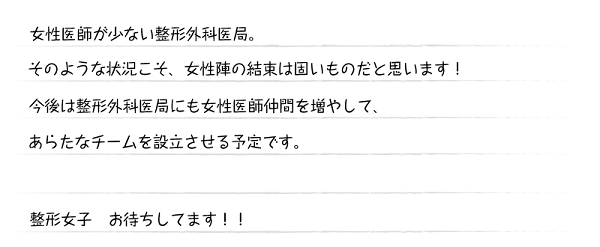 女性医師が少ない整形外科医局。
そのような状況こそ、女性陣の結束は固いものだと思います！
今後は整形外科医局にも女性医師仲間を増やして、
あらたなチームを設立させる予定です。
整形女子　お待ちしてます！！